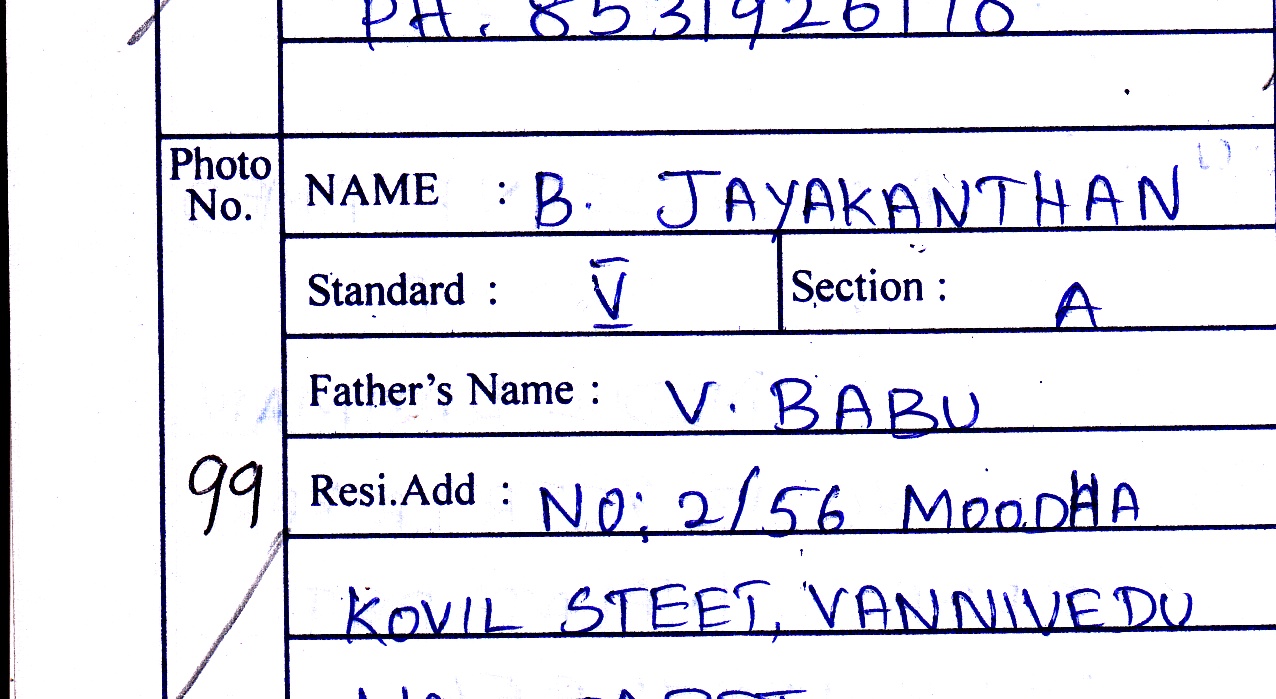 PH. 8531926110
Photo No.
NAME : B. JAYAKANTHAN
Standard : V Section : A
Father's Name : V. BABU
99
Resi.Add : NO: 2/56 MOODHA
KOVIL STEET, VANNIVEDU